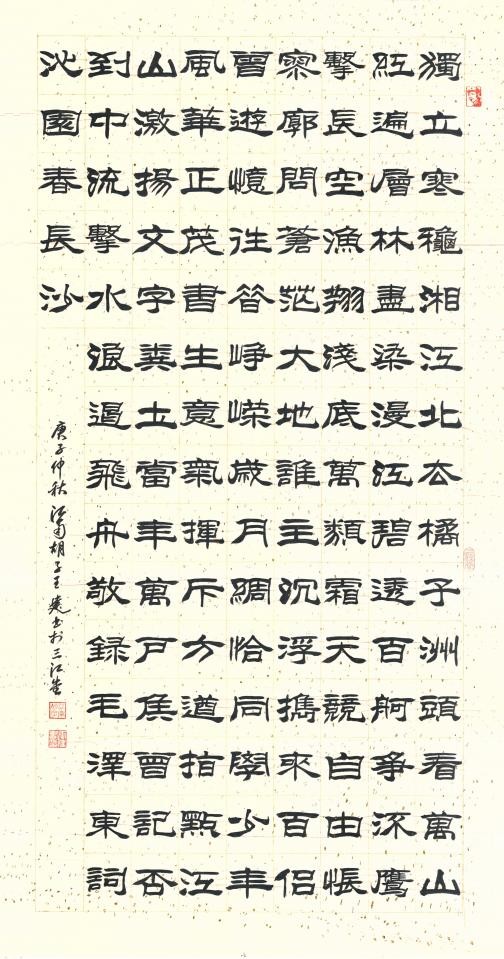 獨立寒龝湘江北去橘子洲頭看萬山
紅遍層林盡染漫江碧透百舸爭流鷹
擊長空漁翔淺底萬類霜天競自由悵
寥廓問蒼茫大地誰主沉浮攜來百侶
曾遊憶往昔崢嶸歲月綢恰同學少年
風華正茂書生意氣揮斥方遒指點江
山激揚文字糞土當年萬戶侯曾記否
到中流擊水浪遏飛舟敬録毛澤東詞
沁園春長沙
庚子仲秋江南胡子王書於三江堂